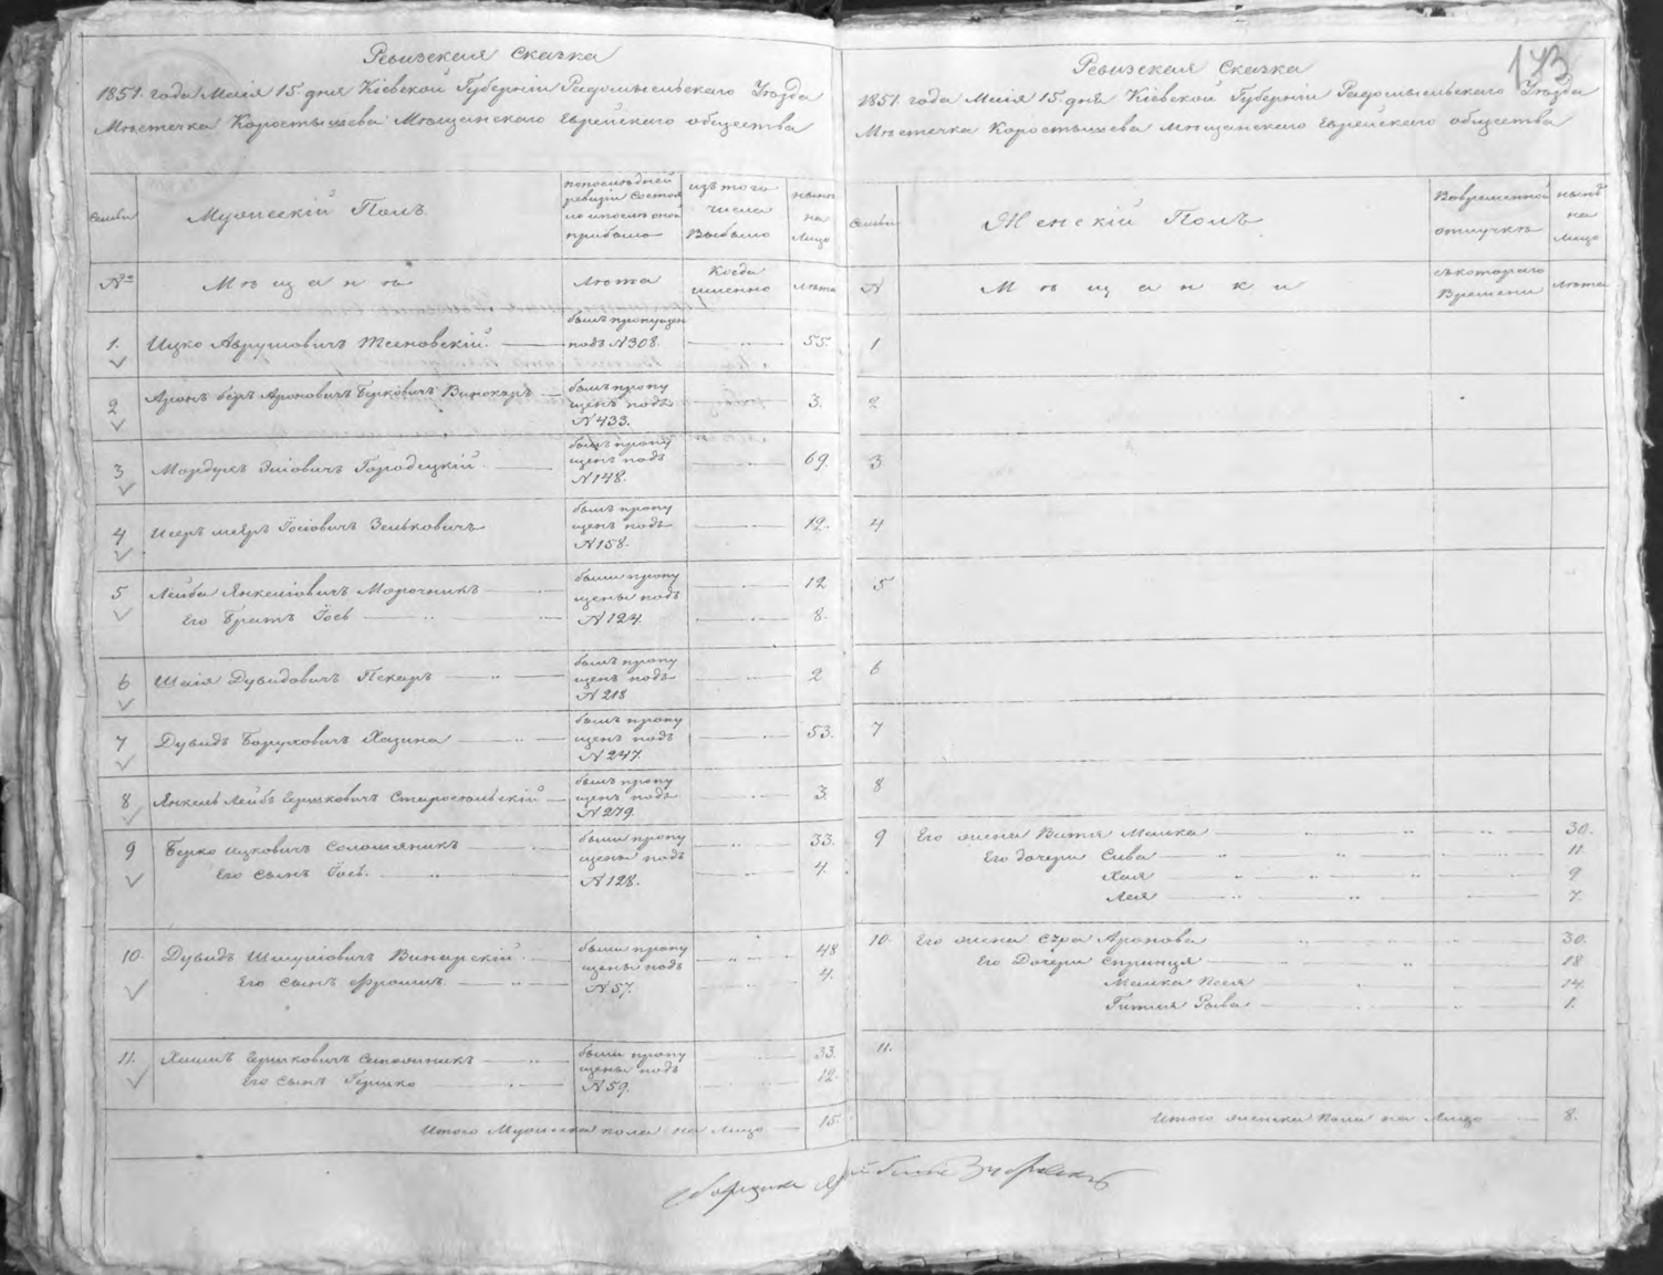 Ревизская Сказка
1851. года Маія 15. дня Кіевской Губерніи Радомысльскаго Уезда
Мѣстечка Коростышева Мѣщанскаго Еврейскаго общества
Семьи
Мужескій Полъ
по последней
ревизіи состоя
ло и после оной
прибыло
изъ того
числа
Выбыло
нынѣ
на
лицо
№
Мѣщанъ
Лѣта
Когда
именно
лѣта
1. Ицко Аврумовичъ Тсеновскій
былъ пропущен
подъ №308.
55.
2 Аронъ беръ Ароновичъ Берковичъ Винокуръ
былъ пропу
щенъ подъ
№433.
3.
3 Мордухъ Эліовичъ Городецкій
былъ пропу
щенъ подъ
№148.
69.
4 Исеръ меяръ Іосіовичъ Зельковичъ
былъ пропу
щенъ подъ
№158.
12.
5 Лейба Янкеліовичъ Морочникъ
Его Братъ Іось
были пропу
щены подъ
№124.
12
8.
6 Шаія Дувидовичъ Пекарь
былъ пропу
щенъ подъ
№218
2
7 Дувидъ Боруховичъ Хазина
былъ пропу
щенъ подъ
№247.
53.
8 Янкель Лейбъ Гершковичъ Старосельскій
былъ пропу
щенъ подъ
№279.
3.
9 Берко Ицковичъ Соломяникъ
Его Сынъ Іось.
были пропу
щены подъ
№128.
33.
4.
10. Дувидъ Шмуліовичъ Винарскій
Его Сынъ Фроимъ
были пропу
щены подъ
№57.
48
4.
11. Хаимъ Гершковичъ
Его Сынъ Гершко
были пропу
щены подъ
№59.
33.
12.
Итого Мужеска пола на лицо 15.
Ревизская Сказка
133
1851. года Маія 15. дня Кіевской Губерніи Радомысльскаго Уезда
Мѣстечка Коростышева мѣщанскаго Еврейскаго общества
Семьи
Женскій Полъ
Вовременной
отлучкѣ
нынѣ
на
лицо
№
Мѣщанки
съ котораго
Времени
лѣта
1
2
3
4
5
6
7
8
9 Его жена Витя Малка 30.
Его дочери Сива 11
Хая 9
Лея 7.
10. Его жена Сура Аронова 30.
Его Дочери Спринця 18
Малка Песя 14.
Гитля Рыва 1.
11.
Итого женска пола на лицо 8.
Сборщикъ